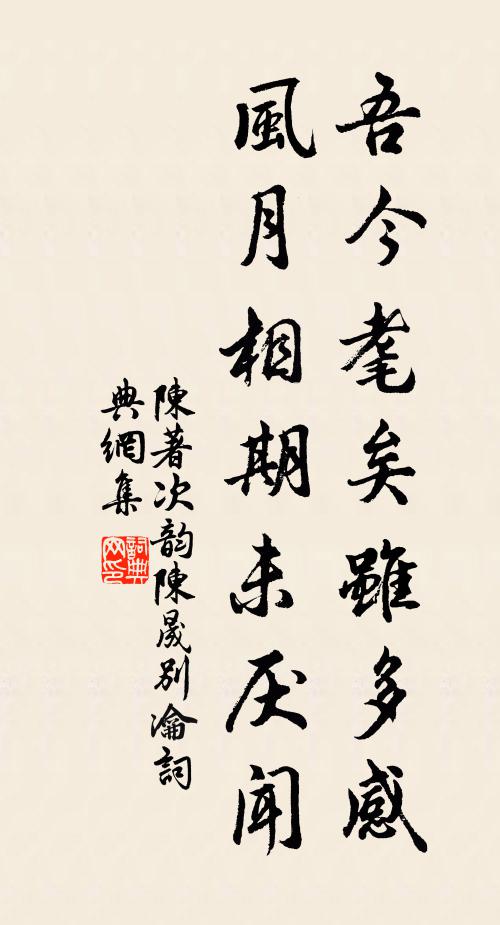 吾今耄矣雖多感
風月相期未厌聞
陳著次韵陳晟别瀹詞
典網集
詞典
网印